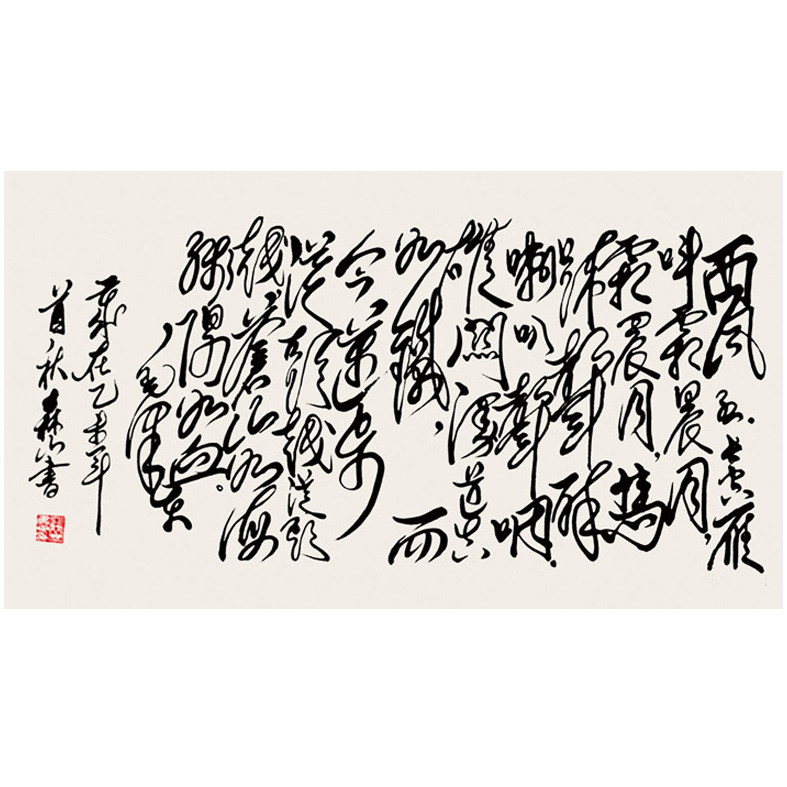 西风烈.长空雁
叫霜晨月,
霜晨月,馬
蹄聲碎
喇叭聲咽.
雄關漫道真
如鐵,而
今迈步
從頭越從頭
越蒼山如海
殘陽如血。
毛澤东
歲在乙未年
首秋森書